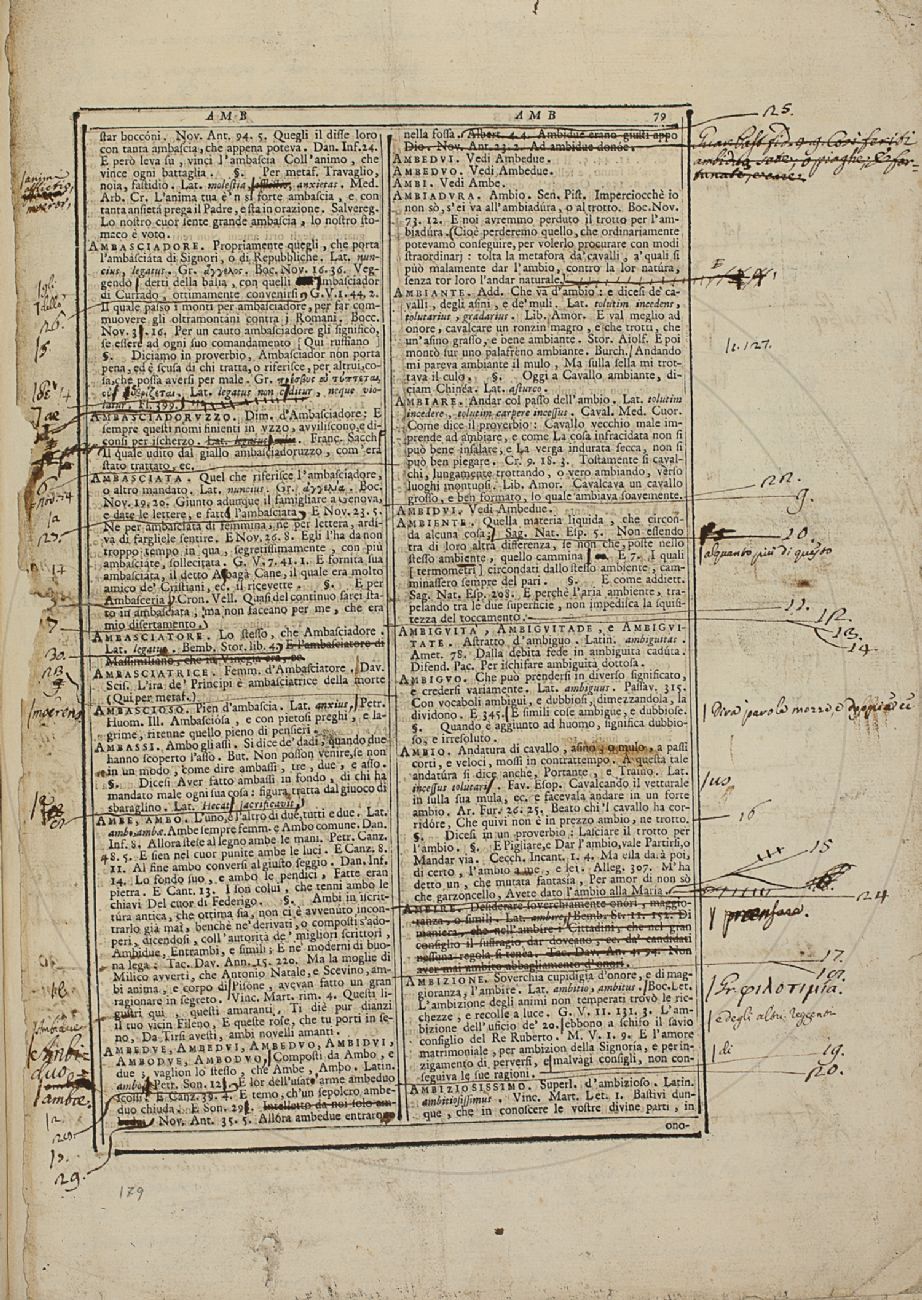 AMB
AMB 79
star boccóni. Nov. Ant. 94. 5. Quegli il disse loro
con tanta ambascia, che appena poteva. Dan. Inf. 24.
E però leva su, vinci l'ambascia Coll'animo, che
vince ogni battaglia. §. Per metaf. Travaglio,
noia, fastidio. Lat. molestia, anxietas. Med.
Arb. Cr. L'anima tua è 'n sì forte ambascia, e con
tanta ansietà prega il Padre, e sta in orazione. Salvereg.
Lo nostro cuor sente grande ambascia, lo nostro sto-
maco è voto.
AMBASCIADORE. Propriamente quegli, che porta
l'ambasciata di Signori, o di Repubbliche. Lat. nun-
cius, legatus. Gr. ἄγγελος. Boc. Nov. 16. 36. Veg-
gendo detti della balia, con quelli ambasciador
di Currado, ottimamente convenirsi. G. V. 1. 44. 2.
Il quale passò i monti per ambasciadore, per far com-
muovere gli oltramontani contra i Romani. Bocc.
Nov. 3. 16. Per un cauto ambasciadore gli significò,
se essere ad ogni suo comandamento [Qui ruffiano]
§. Diciamo in proverbio, Ambasciador non porta
pena, ed è scusa di chi tratta, o riferisce, per altrui, co-
sa, che possa aversi per male. Gr. πρέσβυς οὐ τύπτεται,
Lat. legatus non cæditur, neque vio-
latur. Fl. 399.
AMBASCIADORVZZO. Dim. d'Ambasciadore; E
sempre questi nomi finienti in vzzo, avviliscono, e di-
consi per ischerzo. Franc. Sacch.
Il quale udito dal giallo ambasciadoruzzo, com'era
stato trattato, ec.
AMBASCIATA. Quel che riferisce l'ambasciadore,
o altro mandato. Lat. nuncius. Gr. ἀγγελία. Boc.
Nov. 19. 20. Giunto adunque il famigliare a Genova,
e date le lettere, e fatta l'ambasciata, E Nov. 23. 5.
Ne per ambasciata di femmina, ne per lettera, ardi-
va di fargliele sentire. E Nov. 26. 8. Egli l'ha da non
troppo tempo in qua, segretissimamente, con più
ambasciate, sollecitata. G. V. 7. 41. 1. E fornita sua
ambasciata, il detto Abaga Cane, il quale era molto
amico de' Cristiani, ec. il ricevette. §. E per
Ambasceria. Cron. Vell. Quasi del continuo farei sta-
to in ambasciata; ma non faceano per me, che era
mio disertamento.
AMBASCIATORE. Lo stesso, che Ambasciadore.
Lat. legatus. Bemb. Stor. lib. 4. E l'ambasciatore di
Massimiliano, che in Vinegia era, ec.
AMBASCIATRICE. Femm. d'Ambasciatore. Dav.
Scis. L'ira de' Principi è ambasciatrice della morte
(Qui per metaf.)
AMBASCIOSO. Pien d'ambascia. Lat. anxius. Petr.
Huom. Ill. Ambasciósa, e con pietosi preghi, e la-
grime, ritenne quello pieno di pensieri.
AMBASSI. Ambo gli assi. Si dice de' dadi, quando due
hanno scoperto l'asso. But. Non posson venire, se non
in un modo, come dire ambassi, tre, due, e asso.
§. Dicesi Aver fatto ambassi in fondo, di chi ha
mandato male ogni sua cosa: figura tratta dal giuoco di
sbaraglino. Lat. Hecatæ sacrificavit.
AMBE, AMBO. L'uno, e l'altro di due, tutti e due. Lat.
ambo, ambæ. Ambe sempre femm. e Ambo comune. Dan.
Inf. 8. Allora stese al legno ambe le mani. Petr. Canz.
48. 5. E sien nel cuor punite ambe le luci. E Canz. 8.
11. Al fine ambo conversi al giusto seggio. Dan. Inf.
14. Lo fondo suo, e ambo le pendici, Fatte eran
pietra. E Cant. 13. I son colui, che tenni ambo le
chiavi Del cuor di Federigo. §. Ambi in iscrit-
tura antica, che ottima sia, non ci è avvenuto incon-
trarlo già mai, benchè ne' derivati, o composti s'ado-
peri, dicendosi, coll'autorità de' migliori scrittori,
Ambidue, Entrambi, e simili; E ne' moderni di buo-
na lega: Tac. Dav. Ann. 15. 220. Ma la moglie di
Milico avvertì, che Antonio Natale, e Scevino, am-
bi anima, e corpo di Pisone, avevan fatto un gran
ragionare in segreto. Vinc. Mart. rim. 4. Questi li-
gustri qui, questi amaranti, Ti diè pur dianzi
il tuo vicin Fileno, E quelle rose, che tu porti in se-
no, Da Tirsi avesti, ambi novelli amanti.
AMBEDVE, AMBEDVI, AMBEDVO, AMBIDVI,
AMBODVE, AMBODVO, Composti da Ambo, e
due, vaglion lo stesso, che Ambe, Ambo. Latin.
ambo. Petr. Son. 12. E lor dell'usate arme ambeduo
scossi. E Canz. 39. 4. E temo, ch'un sepolcro ambe-
duo chiuda. E Son. 29. Intelletto da noi solo am-
Nov. Ant. 35. 5. Allora ambedue entraro
nella fossa. Albert. 4. 4. Ambidue erano giusti appo
Dio. Nov. Ant. 23. 2. Ad ambidue donóe.
AMBEDVI. Vedi Ambedue.
AMBEDVO. Vedi Ambedue.
AMBI. Vedi Ambe.
AMBIADVRA. Ambio. Sen. Pist. Imperciocchè io
non sò, s'ei va all'ambiadúra, o al trotto. Boc. Nov.
73. 12. E noi avremmo perduto il trotto per l'am-
biadúra. (Cioè perderemo quello, che ordinariamente
potevamo conseguire, per volerlo procurare con modi
straordinarj: tolta la metafora da' cavalli, a' quali si
può malamente dar l'ambio, contro la lor natúra,
senza tor loro l'andar naturale.
AMBIANTE. Add. Che va d'ambio: e dicesi de' ca-
valli, degli asini, e de' muli. Lat. tolutim incedens,
tolutarius, gradarius. Lib. Amor. E val meglio ad
onore, cavalcare un ronzin magro, e che trotti, che
un'asino grasso, e bene ambiante. Stor. Aiolf. E poi
montò sur uno palafreno ambiante. Burch. Andando
mi pareva ambiante il mulo, Ma sulla sella mi trot-
tava il culo. §. Oggi a Cavallo ambiante, di-
ciam Chinéa. Lat. asturco.
AMBIARE. Andar col passo dell'ambio. Lat. tolutim
incedere, tolutim carpere incessus. Caval. Med. Cuor.
Come dice il proverbio: Cavallo vecchio male im-
prende ad ambiare, e come La cosa infracidata non si
può bene insalare, e La verga indurata secca, non si
può ben piegare. Cr. 9. 18. 3. Tostamente si caval-
chi, lungamente trottando, o vero ambiando, verso
luoghi montuosi. Lib. Amor. Cavalcava un cavallo
grosso, e ben formato, lo quale ambiava soavemente.
AMBIDVI. Vedi Ambedue.
AMBIENTE. Quella materia liquida, che circon-
da alcuna cosa; Sag. Nat. Esp. 5. Non essendo
tra di loro altra differenza, se non che, poste nello
stesso ambiente, quello cammina E 7. I quali
[termometri] circondati dallo stesso ambiente, cam-
minassero sempre del pari. §. E come addiett.
Sag. Nat. Esp. 208. E perchè l'aria ambiente, tra-
pelando tra le due superficie, non impedisca la squisi-
tezza del toccamento.
AMBIGVITA, AMBIGVITADE, e AMBIGVI-
TATE. Astratto d'ambiguo. Latin. ambiguitas.
Amet. 78. Dalla debita fede in ambiguità cadúta.
Difend. Pac. Per ischifare ambiguità dottosa.
AMBIGVO. Che può prendersi in diverso significato,
e credersi variamente. Lat. ambiguus. Passav. 315.
Con vocaboli ambigui, e dubbiosi, dimezzandola, la
dividono. E 345. E simili cose ambigue, e dubbiose.
§. Quando è aggiunto ad huomo, significa dubbio-
so, e irresoluto.
AMBIO. Andatura di cavallo, asino, o mulo, a passi
corti, e veloci, mossi in contrattempo. A questa tale
andatúra si dice anche, Portante, e Traino. Lat.
incessus tolutaris. Fav. Esop. Cavalcando il vetturale
in sulla sua mula, ec. e facevasa andare in un forte
ambio. Ar. Fur. 26. 25. Beato chi 'l cavallo ha cor-
ridóre, Che quivi non è in prezzo ambio, ne trotto.
§. Dicesi in un proverbio: Lasciare il trotto per
l'ambio. §. E Pigliare, e Dar l'ambio, vale Partirsi, o
Mandar via. Cecch. Incant. 1. 4. Ma ella darà poi,
di certo, l'ambio a me, e lei. Alleg. 307. M'ha
detto un, che mutata fantasia, Per amor di non sò
che garzoncello, Avete dato l'ambio alla Maria.
AMBIRE. Desiderare soverchiamente onori, maggio-
ranza, o simili. Lat. ambire. Bemb. Str. 11. 152. Di
maniera, che nell'ambire i Cittadini, che nel gran
consiglio il suffragio dar doveano, ec. da' candidati
nessuna regola si tenéa. Tac. Dav. An. 4. 94. Non
aver mai ambito abbagliamento d'onori.
AMBIZIONE. Soverchia cupidigia d'onore, e di mag-
gioranza, l'ambire. Lat. ambitio, ambitus. Boc. Let.
L'ambizione degli animi non temperati trovò le ric-
chezze, e recolle a luce. G. V. 11. 131. 3. L'am-
bizione dell'uficio de' 20. ebbono a schifo il savio
consiglio del Re Ruberto. M. V. 1. 9. E l'amore
matrimoniale, per ambizion della Signoria, e per in-
zigamento di perversi, e malvagi consigli, non con-
seguiva le sue ragioni.
AMBIZIOSISSIMO. Superl. d'ambizioso. Latin.
ambitiosissimus. Vinc. Mart. Let. 1. Bastivi dun-
que, che in conoscere le vostre divine parti, in
ono-
25.
E
lc. 127.
22.
9.
10.
alquanto più di questo
11. 12.
13.
14
uo
16
15
24
17.
Gr. φιλοτιμία.
e degli altri reggenti
di 19.
20.
26.
15
30.
29.
179